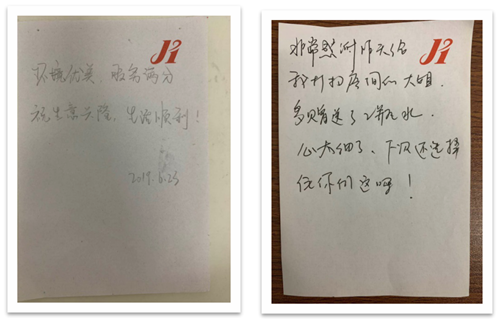 环境优美、服务两分
祝生意兴隆，生活顺利！
2019.6.23
非常感谢昨天给
我打扫房间的大姐，
多赠送了2瓶水，
心太细了、下次还选择
住你们这啊！